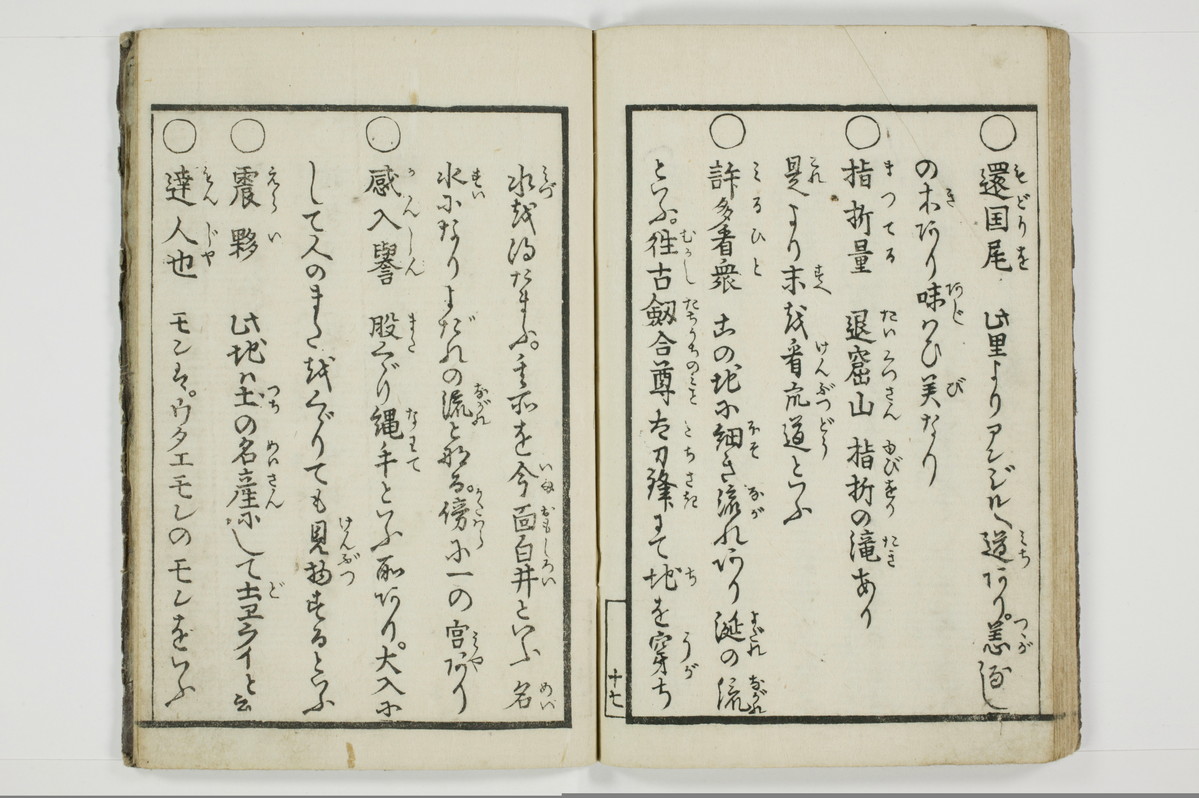 ○還国尾 此里よりアンジル道あり。恙なし
の木あり味はひ美なり
○指折量 退窟山 指折の滝あり
是より末を看流道といふ
○許多看衆 この地に細き流れあり涎の流
といふ。往古劔合尊太刀鋒にて地を穿ち
十七
水を得たまふ。其所を今面白井といふ名
水になりよだれの流と称る。傍に一の宮あり
○感入譽 股くぐり縄手といふ所あり。大入に
して人のまたをくぐりても見物するといふ
○震夥 此地は土の名産にして土ヱライと云
○達人也 モンは。ウタエモンのモンをいふ